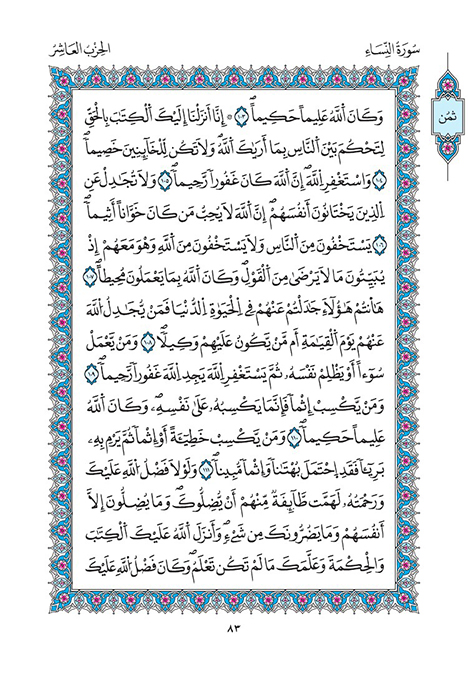 سُورَةُ النِّسَاءِ
الحِزْبُ العَاشِرُ
ثُمُن
وَكَانَ اَ۬للَّهُ عَلِيماً حَكِيماًۖ ١٠٣ ۞ اِنَّآ أَنزَلْنَآ إِلَيْكَ اَ۬لْكِتَٰبَ بِالْحَقِّ
لِتَحْكُمَ بَيْنَ اَ۬لنَّاسِ بِمَآ أَر۪يٰكَ اَ۬للَّهُۖ وَلَا تَكُن لِّلْخَآئِنِينَ خَصِيماًۖ
١٠٤ وَاسْتَغْفِرِ اِ۬للَّهَۖ إِنَّ اَ۬للَّهَ كَانَ غَفُوراً رَّحِيماًۖ ١٠٥ وَلَا تُجَٰدِلْ عَنِ
اِ۬لذِينَ يَخْتَانُونَ أَنفُسَهُمُۥٓۖ إِنَّ اَ۬للَّهَ لَا يُحِبُّ مَن كَانَ خَوَّاناً أَثِيماًۖ
١٠٦ يَسْتَخْفُونَ مِنَ اَ۬لنَّاسِ وَلَا يَسْتَخْفُونَ مِنَ اَ۬للَّهِ وَهُوَ مَعَهُمُۥٓ إِذْ
يُبَيِّتُونَ مَا لَا يَرْض۪يٰ مِنَ اَ۬لْقَوْلِۖ وَكَانَ اَ۬للَّهُ بِمَا يَعْمَلُونَ مُحِيطاًۖ ١٠٧
هَٰٓأَنتُمْ هَٰٓؤُلَآءِ جَٰدَلْتُمْ عَنْهُمْ فِے اِ۬لْحَيَوٰةِ اِ۬لدُّنْي۪ا فَمَنْ يُّجَٰدِلُ اُ۬للَّهَ
عَنْهُمْ يَوْمَ اَ۬لْقِيَٰمَةِ أَم مَّنْ يَّكُونُ عَلَيْهِمْ وَكِيلاًۖ ١٠٨ وَمَنْ يَّعْمَلْ
سُوٓءاً اَوْ يَظْلِمْ نَفْسَهُۥ ثُمَّ يَسْتَغْفِرِ اِ۬للَّهَ يَجِدِ اِ۬للَّهَ غَفُوراً رَّحِيماًۖ ١٠٩
وَمَنْ يَّكْسِبِ اِثْماً فَإِنَّمَا يَكْسِبُهُۥ عَلَىٰ نَفْسِهِۦۖ وَكَانَ اَ۬للَّهُ
عَلِيماً حَكِيماًۖ ١١٠ وَمَنْ يَّكْسِبْ خَطِيٓـَٔةً اَوِ اِثْماً ثُمَّ يَرْمِ بِهِۦ
بَرِيٓـٔاً فَقَدِ اِ۪حْتَمَلَ بُهْتَٰناً وَإِثْماً مُّبِيناًۖ ١١١ وَلَوْلَا فَضْلُ اُ۬للَّهِ عَلَيْكَ
وَرَحْمَتُهُۥ لَهَمَّت طَّآئِفَةٌ مِّنْهُمُۥٓ أَنْ يُّضِلُّوكَۖ وَمَا يُضِلُّونَ إِلَّآ
أَنفُسَهُمْۖ وَمَا يَضُرُّونَكَ مِن شَےْءٖۖ وَأَنزَلَ اَ۬للَّهُ عَلَيْكَ اَ۬لْكِتَٰبَ
وَالْحِكْمَةَ وَعَلَّمَكَ مَا لَمْ تَكُن تَعْلَمُۖ وَكَانَ فَضْلُ اُ۬للَّهِ عَلَيْكَ
٨٣